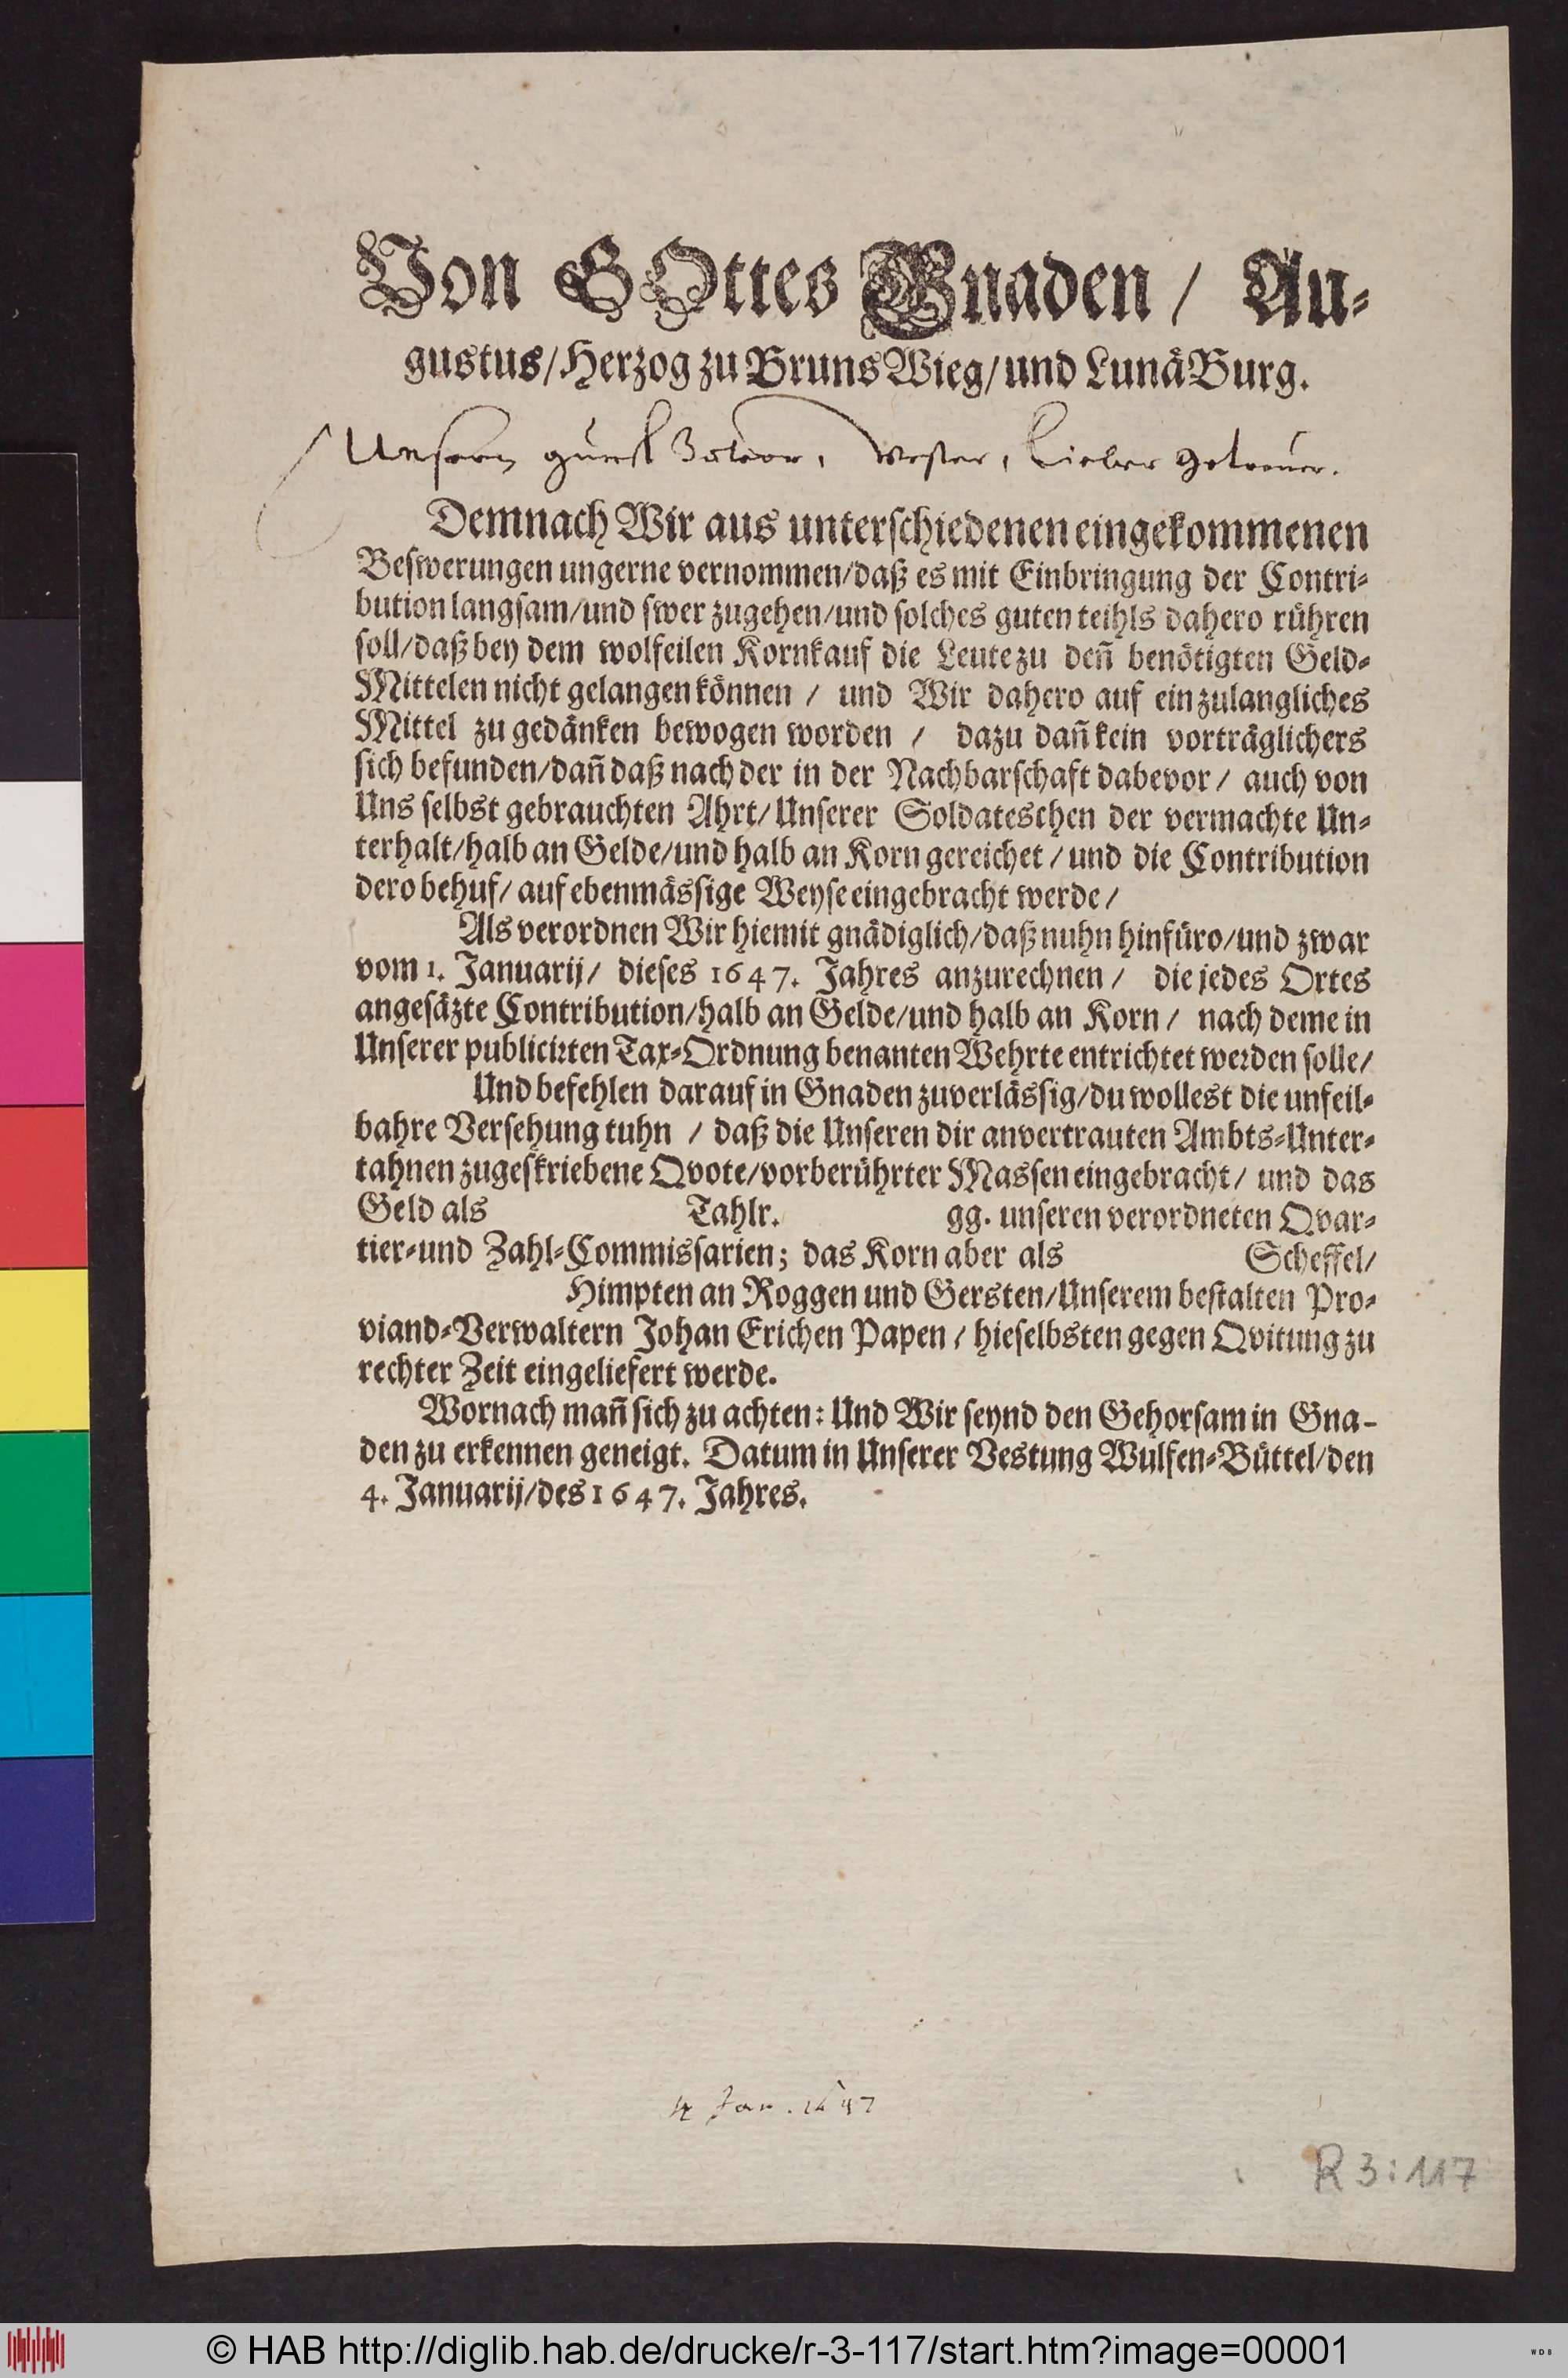 Von GOttes Gnaden / Au-
gustus/Herzog zu BrunsWieg/und LunäBurg.
Unsern gunst zuvor, Vester, Lieber Getreuer.
Demnach Wir aus unterschiedenen eingekommenen
Beswerungen ungerne vernommen/daß es mit Einbringung der Contri-
bution langsam/und swer zugehen/und solches guten teihls dahero rühren
soll/daß bey dem wolfeilen Kornkauf die Leute zu den̄ benötigten Geld-
Mittelen nicht gelangen können / und Wir dahero auf ein zulangliches
Mittel zu gedänken bewogen worden / dazu dan̄ kein vorträglichers
sich befunden/dan̄ daß nach der in der Nachbarschaft dabevor/ auch von
Uns selbst gebrauchten Ahrt/Unserer Soldateschen der vermachte Un-
terhalt/halb an Gelde/und halb an Korn gereichet / und die Contribution
dero behuf/ auf ebenmässige Weyse eingebracht werde/
Als verordnen Wir hiemit gnädiglich/daß nuhn hinfüro/und zwar
vom 1. Januarij/ dieses 1647. Jahres anzurechnen/ die jedes Ortes
angesäzte Contribution/halb an Gelde/und halb an Korn/ nach deme in
Unserer publicirten Tax-Ordnung benanten Wehrte entrichtet werden solle/
Und befehlen darauf in Gnaden zuverlässig/du wollest die unfeil-
bahre Versehung tuhn / daß die Unseren dir anvertrauten Ambts-Unter-
tahnen zugeskriebene Qvote/vorberührter Massen eingebracht/ und das
Geld als Tahlr. gg. unseren verordneten Qvar-
tier-und Zahl-Commissarien; das Korn aber als Scheffel/
Himpten an Roggen und Gersten/Unserem bestalten Pro-
viand-Verwaltern Johan Erichen Papen / hieselbsten gegen Qvitung zu
rechter Zeit eingeliefert werde.
Wornach man̄ sich zu achten: Und Wir seynd den Gehorsam in Gna-
den zu erkennen geneigt. Datum in Unserer Vestung Wulfen-Büttel/den
4. Januarij/des 1647. Jahres.
4 Jan. 1647
R 3:117
© HAB http://diglib.hab.de/drucke/r-3-117/start.htm?image=00001
WDB